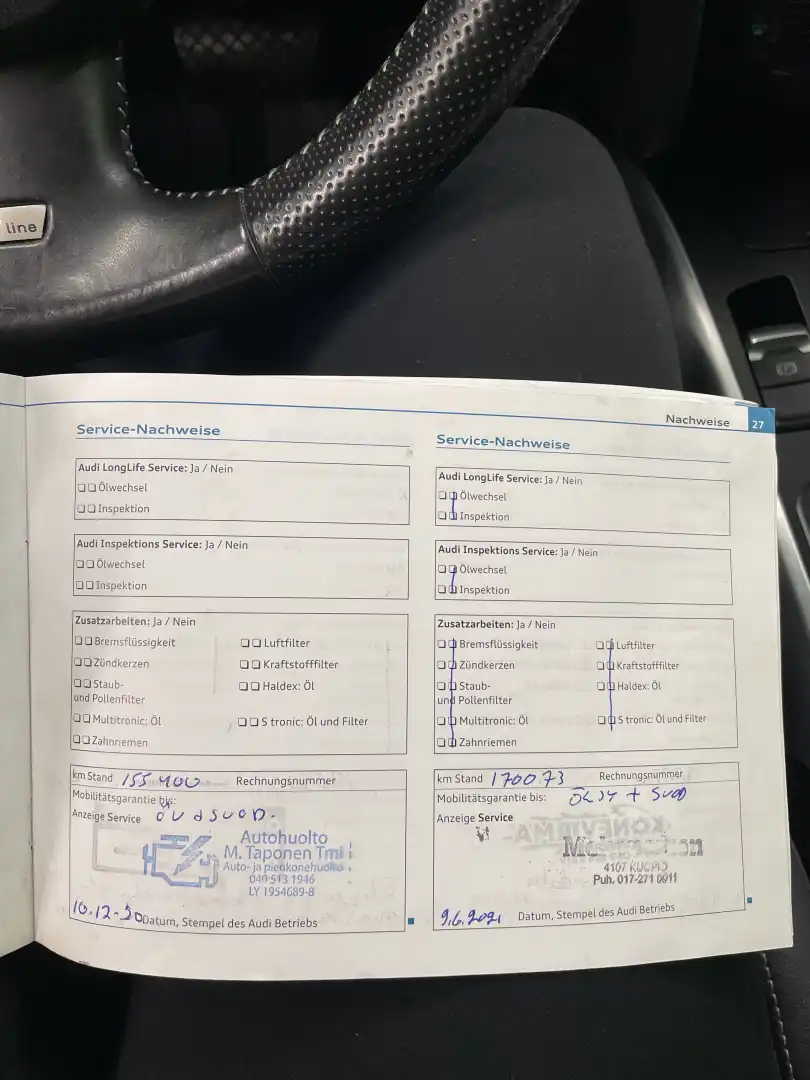 line
Nachweise 27
Service-Nachweise
Audi LongLife Service: Ja / Nein
Ölwechsel
Inspektion
Audi Inspektions Service: Ja / Nein
Ölwechsel
Inspektion
Zusatzarbeiten: Ja / Nein
Bremsflüssigkeit
Luftfilter
Zündkerzen
Kraftstofffilter
Staub-
und Pollenfilter
Haldex: Öl
Multitronic: Öl
S tronic: Öl und Filter
Zahnriemen
km Stand 155 400 Rechnungsnummer
Mobilitätsgarantie bis:
Anzeige Service
Autohuolto
M. Taponen Tmi
Auto- ja pienkonehuolto
040 513 1946
LY 1954689-8
10.12-20 Datum, Stempel des Audi Betriebs
Service-Nachweise
Audi LongLife Service: Ja / Nein
Ölwechsel
Inspektion
Audi Inspektions Service: Ja / Nein
Ölwechsel
Inspektion
Zusatzarbeiten: Ja / Nein
Bremsflüssigkeit
Luftfilter
Zündkerzen
Kraftstofffilter
Staub-
und Pollenfilter
Haldex: Öl
Multitronic: Öl
S tronic: Öl und Filter
Zahnriemen
km Stand 170073 Rechnungsnummer
Mobilitätsgarantie bis: ÖLJY + SUOD
Anzeige Service
4107 KUOPIO
Puh. 017-271 0011
9.6.2021 Datum, Stempel des Audi Betriebs